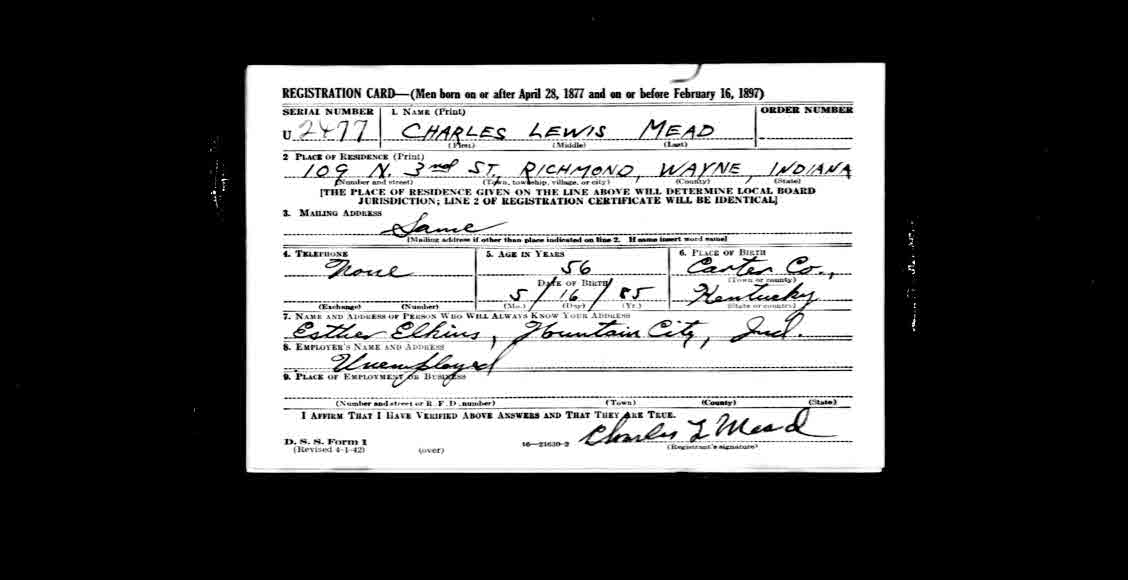 REGISTRATION CARD—(Men born on or after April 28, 1877 and on or before February 16, 1897)
SERIAL NUMBER 1. NAME (Print) ORDER NUMBER
U 2477 CHARLES LEWIS MEAD
(First) (Middle) (Last)
2 PLACE OF RESIDENCE (Print)
109 N. 3rd ST, RICHMOND, WAYNE, INDIANA
(Number and street) (Town, township, village, or city) (County) (State)
[THE PLACE OF RESIDENCE GIVEN ON THE LINE ABOVE WILL DETERMINE LOCAL BOARD
JURISDICTION; LINE 2 OF REGISTRATION CERTIFICATE WILL BE IDENTICAL]
3. MAILING ADDRESS
Same
[Mailing address if other than place indicated on line 2. If same insert word same]
4. TELEPHONE 5. AGE IN YEARS 6. PLACE OF BIRTH
None 56 Carter Co.,
DATE OF BIRTH (Town or county)
5 / 16 / 85 Kentucky
(Exchange) (Number) (Mo.) (Day) (Yr.) (State or country)
7. NAME AND ADDRESS OF PERSON WHO WILL ALWAYS KNOW YOUR ADDRESS
Esther Elkins, Fountain City, Ind.
8. EMPLOYER'S NAME AND ADDRESS
Unemployed
9. PLACE OF EMPLOYMENT OR BUSINESS
(Number and street or R. F. D. number) (Town) (County) (State)
I AFFIRM THAT I HAVE VERIFIED ABOVE ANSWERS AND THAT THEY ARE TRUE.
Charles L Mead
D. S. S. Form 1 16—21630-2 (Registrant's signature)
(Revised 4-1-42) (over)